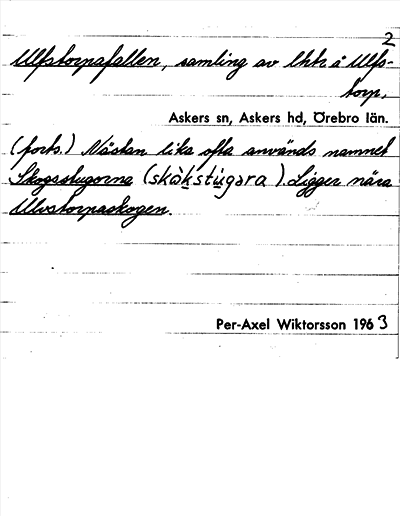 2
Ulfstorpafallen, samling av lhh. å Ulfs-
torp.
Askers sn, Askers hd, Örebro län.
(forts.) Nästan lika ofta används namnet
Skogsstugorna (skòk̬stùgəra). Ligger nära
Ulvstorpaskogen.
Per-Axel Wiktorsson 1963